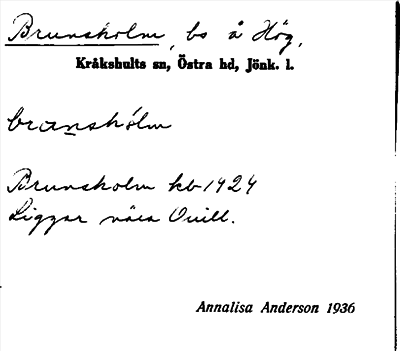 Brunsholm, bs å Hög,
Kråkshults sn, Östra hd, Jönk. l.
brunshólm
Brunsholm kb 1424
Liggar nära Quill.
Annalisa Anderson 1936